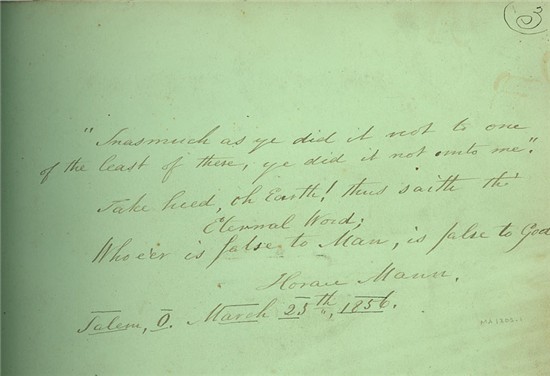 3
"Inasmuch as ye did it not to one
of the least of these, ye did it not unto me".
Take heed, oh Earth! thus saith the
Eternal Word;
Whoe'er is false to Man, is false to God
Horace Mann.
Salem, O. March 25th, 1856.
MA 1303-1